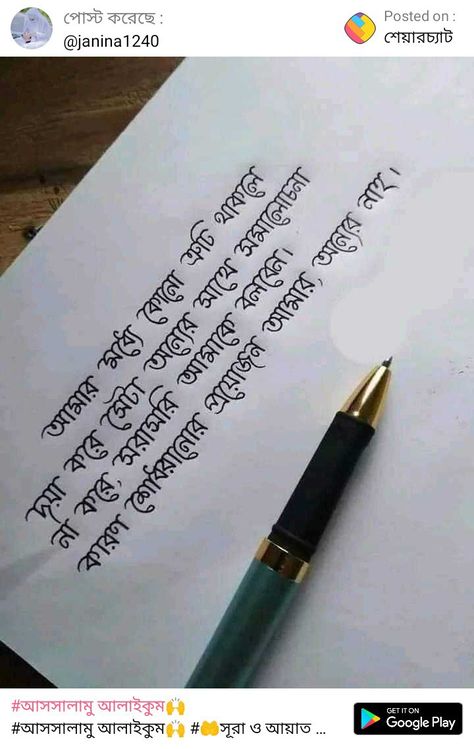 পোস্ট করেছে :
@janina1240
Posted on :
শেয়ারচ্যাট
আমার মধ্যে কোনো ত্রুটি থাকলে
দয়া করে সেটা অন্যের সাথে সমালোচনা
না করে, সরাসরি আমাকে বলবেন।
কারণ শোধরানোর প্রয়োজন আমার, অন্যের নাহ।
#আসসালামু আলাইকুম🙌
#আসসালামু আলাইকুম🙌 #🤲সূরা ও আয়াত ...
GET IT ON
Google Play